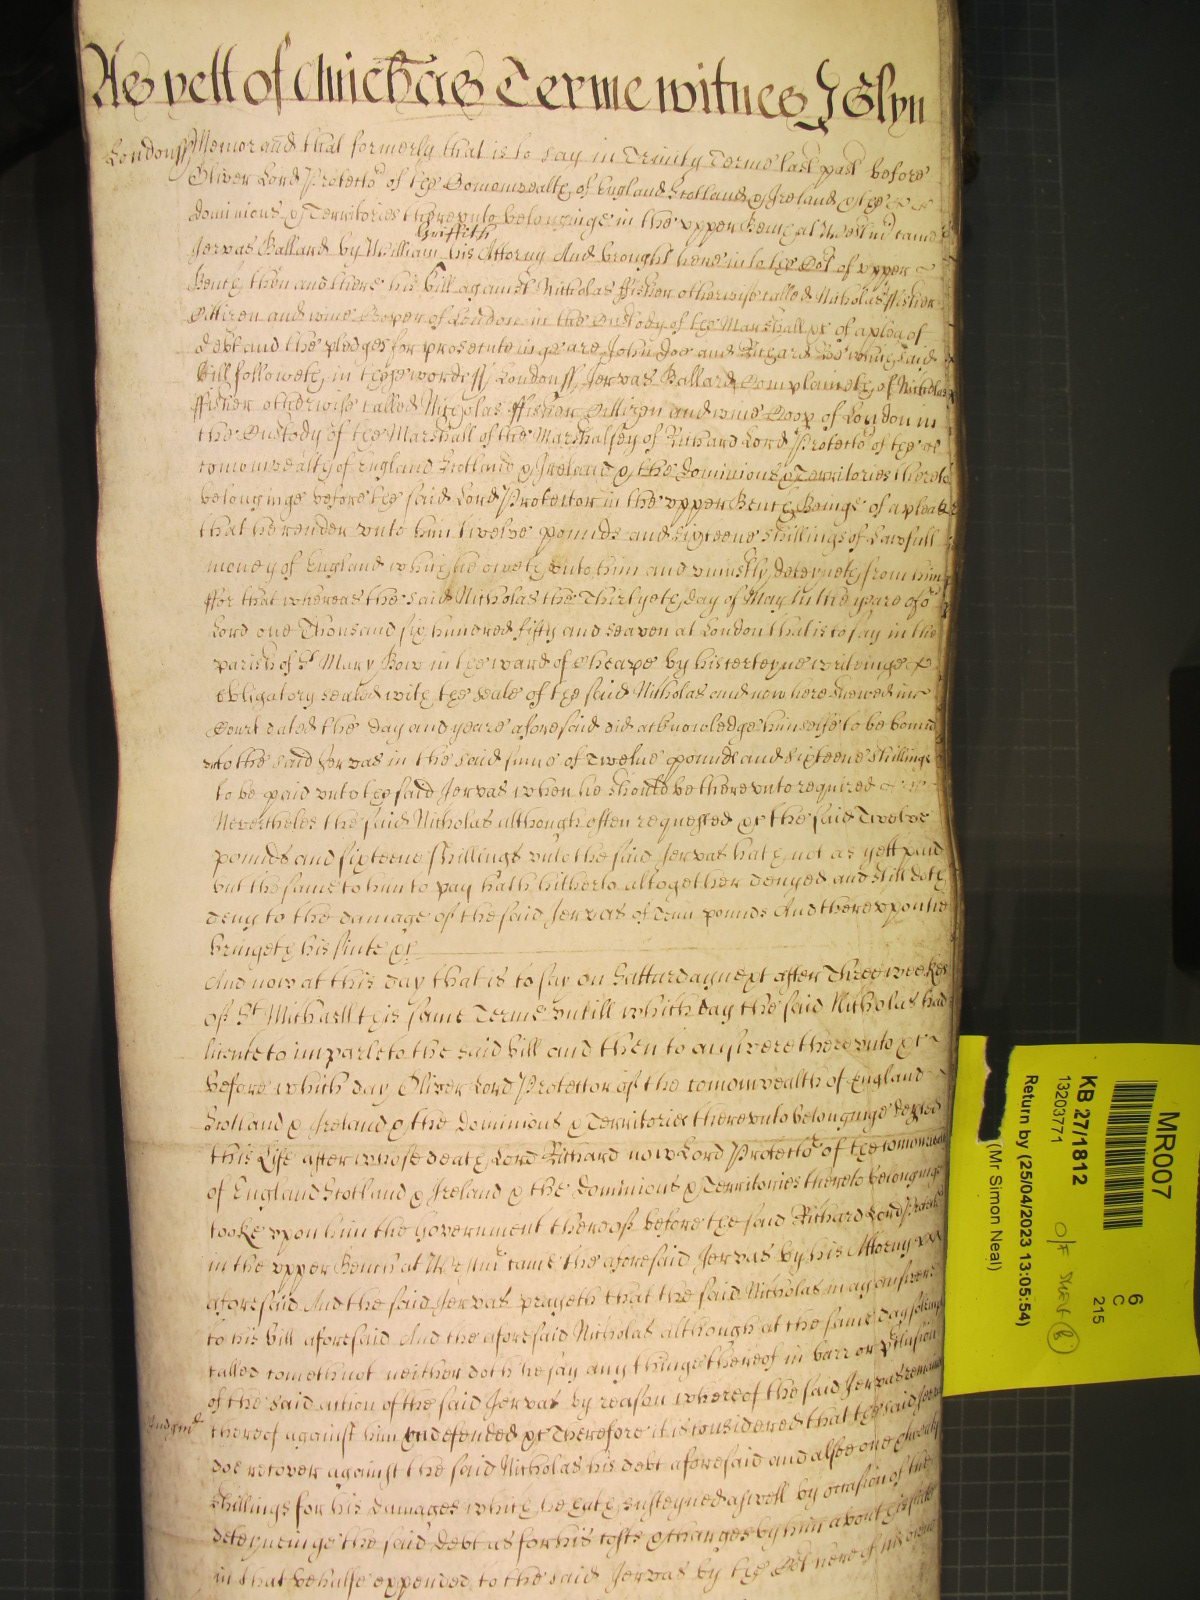 As yett of Michas Terme witnes J Glyn
Londonss Memorand that formerly that is to say in Trinity Terme last past before
Oliver Lord Protecto of the Comonwealth of England Scotland & Ireland & the
dominions & Territories therevnto belonginge in the vpper Bench at Westm came
Griffith
Jervas Ballard by William his Attorny And brought here into the Cot of vpper
Bench then and there his bill against Nicholas ffisher otherwise called Nicholas ffisher
Cittizen and wine Cooper of London in the Custody of the Marshall &c of a plea of
debt and the pledges for prosecuteinge are John Doe and Richard Roe which said
bill followeth in these wordes ss Londonss Jervas Ballard Complaineth of Nicholas
ffisher otherwise called Nicholas ffisher Cittizen and wine Coop of London in
the Custody of the Marshall of the Marshalsey of Richard Lord Protecto of the
comonwealth of England Scotland & Ireland & the Dominions & Territories thereto
belonginge before the said Lord Protector in the vpper Bench Beinge of a plea
that he render vnto him twelve pounds and sixteene shillings of Lawfull
money of England which he oweth vnto him and vniustly deteyneth from him
ffor that whereas the said Nicholas the Thirtyeth day of May in the yeare of o
Lord one Thousand six hundred fifty and seaven at London that is to say in the
parish of St Mary Bow in the ward of Cheape by his certeyne writeinge
obligatory sealed with the seale of the said Nicholas and now here shewed in
Court dated the day and yeare aforesaid did acknowledge himselfe to be bound
to the said Jervas in the said sume of Twelve pounds and sixteene shillings
to be paid vnto the said Jervas when he should be therevnto required
Nevertheles the said Nicholas although often requested &c the said Twelve
pounds and sixteene shillings vnto the said Jervas hath not as yett paid
but the same to him to pay hath hitherto altogether denyed and still doth
deny to the damage of the said Jervas of Tenn pounds And therevpon he
bringeth his suite &c
And now at this day that is to say on Satturday next after Three weekes
of St Michaell this same Terme vntill which day the said Nicholas had
licence to imparle to the said bill and then to answere therevnto &c
before which day Oliver Lord Protector of the comonwealth of England
Scotland & Ireland & the Dominions & Territories therevnto belonginge
this Life after whose death Lord Richard now Lord Protecto of the comonwealth
of England Scotland & Ireland & the Dominions & Territories thereto belonginge
tooke vpon him the Government thereof before the said Richard Lord Protecto
in the vpper Bench at Westm came the aforesaid Jervas by his Attorny
aforesaid And the said Jervas prayeth that the said Nicholas may answere
to his bill aforesaid And the aforesaid Nicholas although at the same day solemply
called cometh not neither doth he say any thinge thereof in barr or
of the said action of the said Jervas by reason whereof the said Jervas remaines
Judgmt thereof against him vndefended &c Therefore it is considered that the said Jervas
doe recover against the said Nicholas his debt aforesaid and alsoe one
shillings for his damages which he hath susteyned aswell by occasion of the
deteyneinge the said Debt as for his costs & charges by him about his suite
in that behalfe expended to the said Jervas by the Cot here of his owne
MR007
6
C
215
KB 27/1812
13203771
O/F
Return by (25/04/2023 13:05:54)
(Mr Simon Neal)